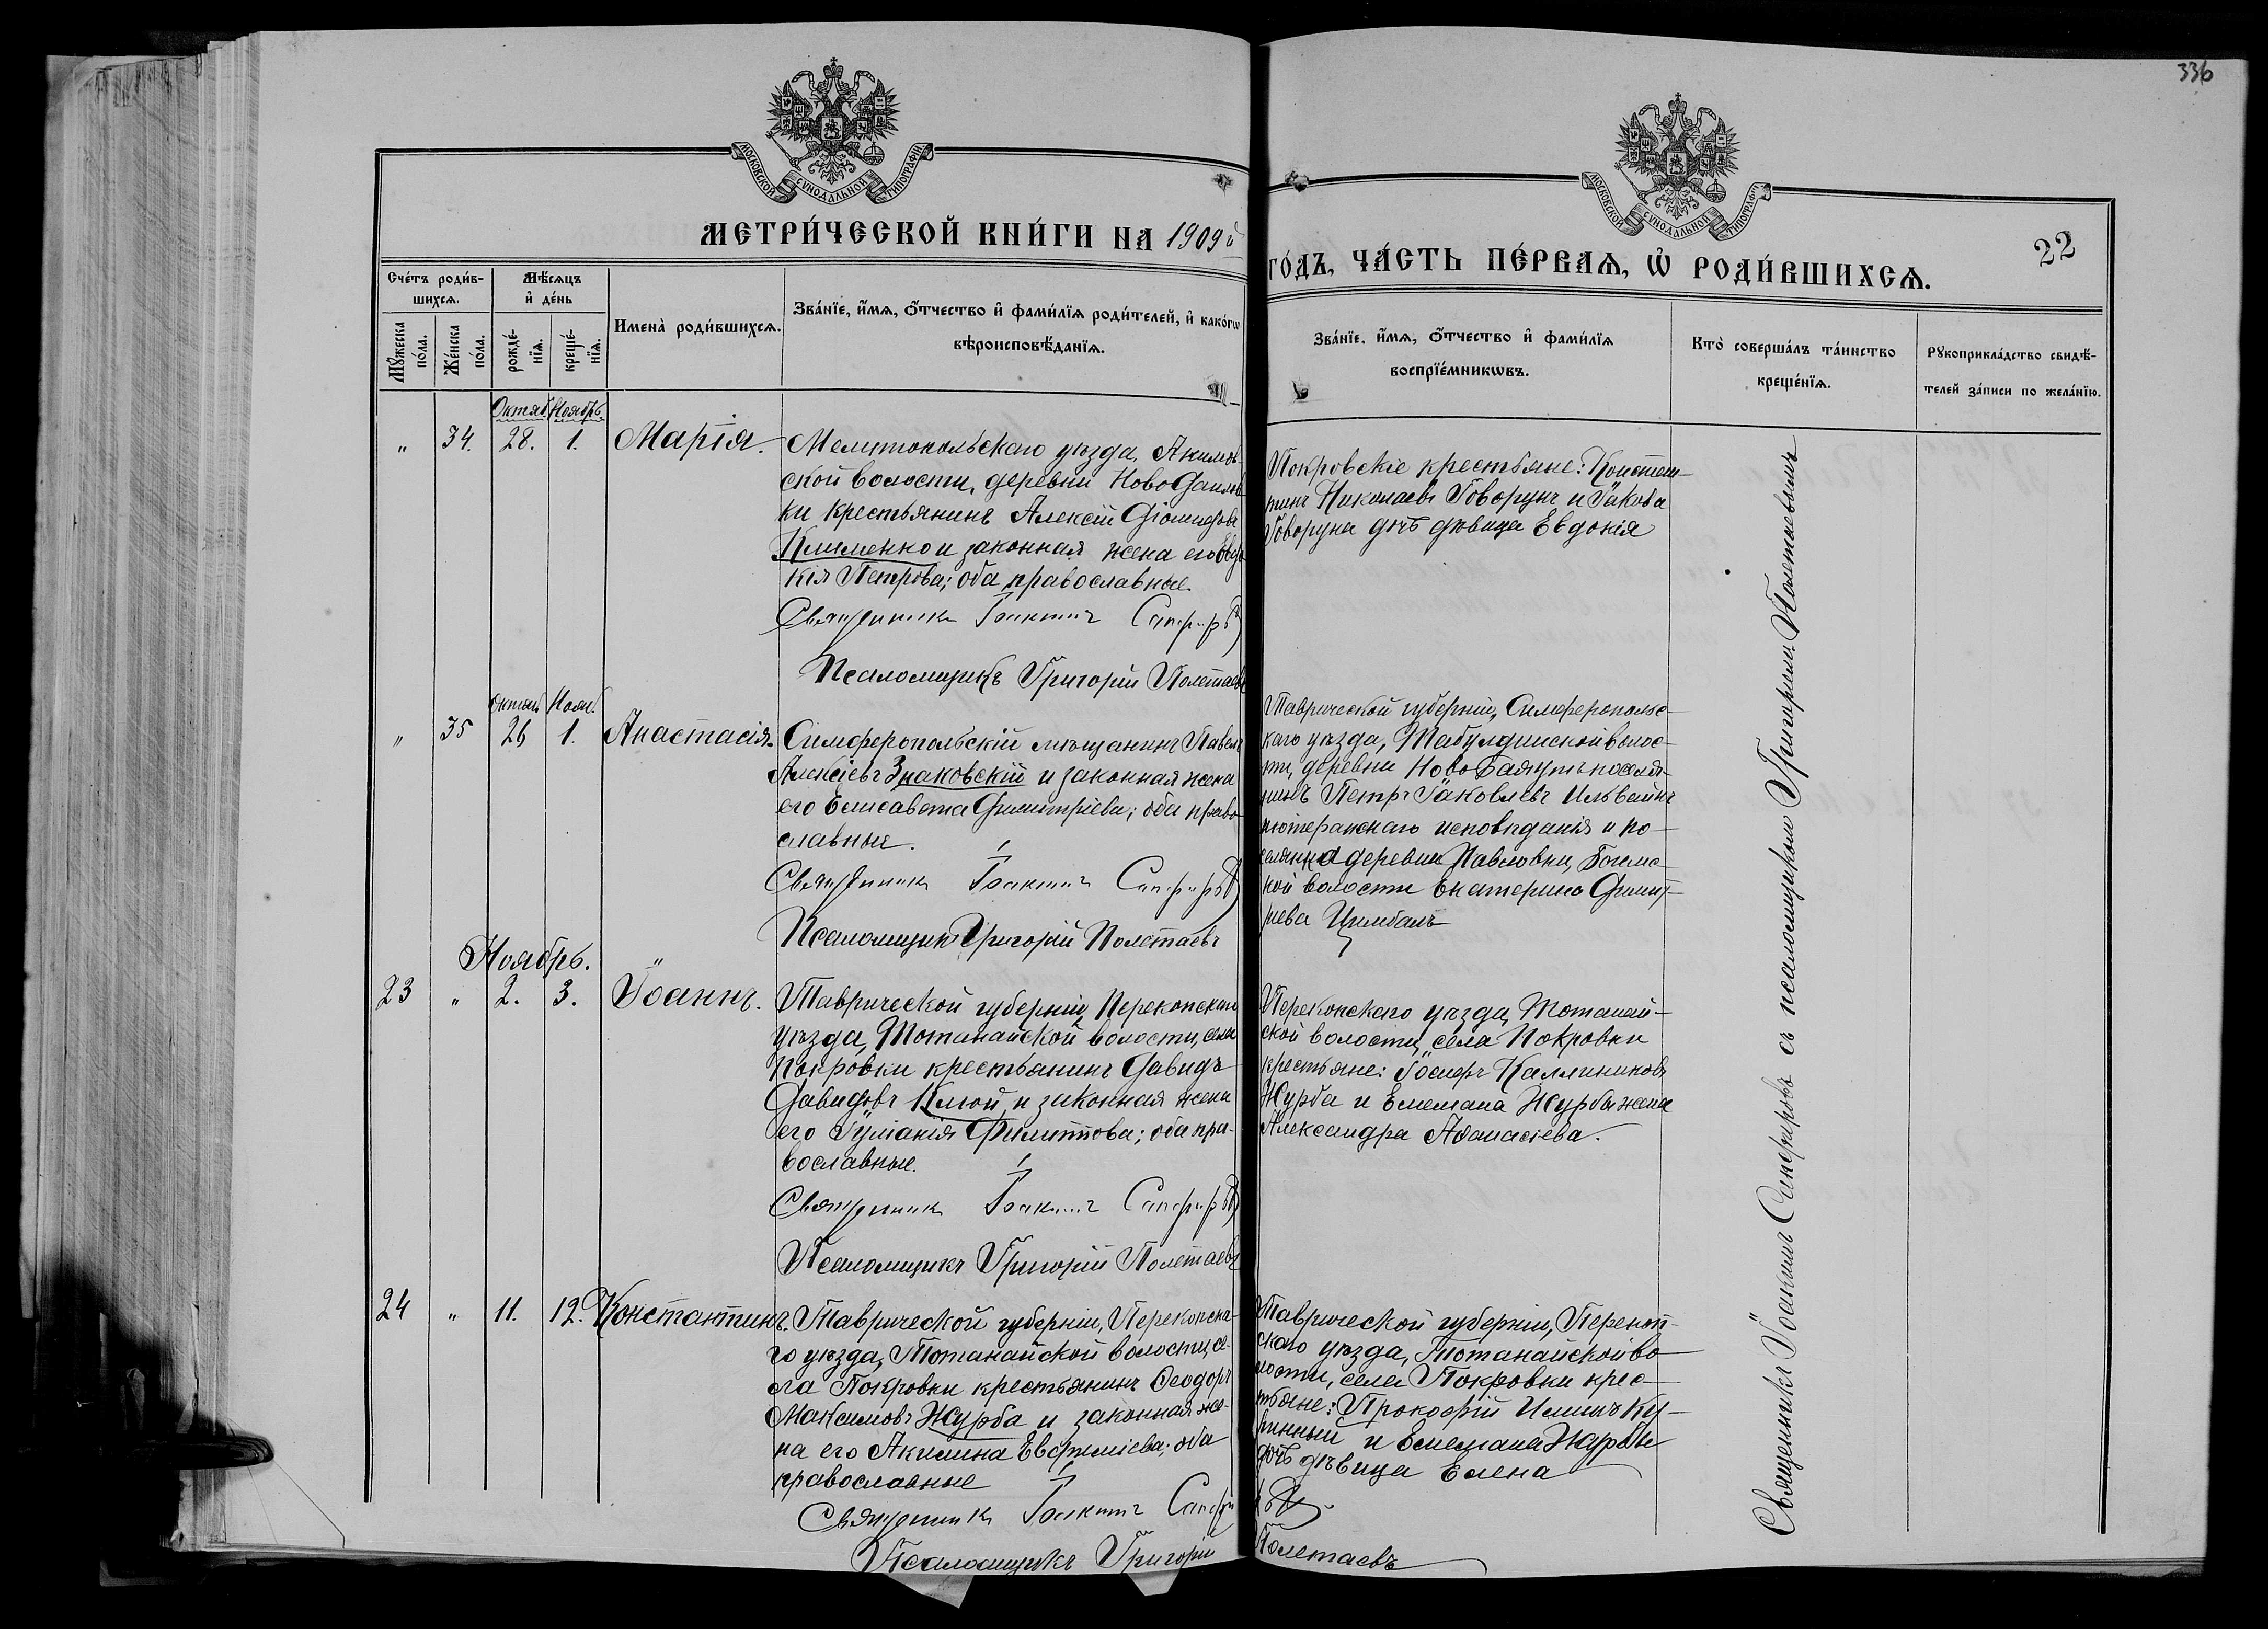 336
МОСКОВСКОЙ СѴНОДАЛЬНОЙ ТИПОГРАФІИ
МОСКОВСКОЙ СѴНОДАЛЬНОЙ ТИПОГРАФІИ
МЕТРИ́ЧЕСКОЙ КНИ́ГИ НА 1909й
ГО́ДЪ, ЧА́СТЬ ПЕ́РВАѦ, Ѡ҆ РОДИ́ВШИХСѦ.
22
Сче́тъ роди́в-
шихсѧ.
Мѣ́сѧцъ
и҆ де́нь
Мꙋ́жеска
по́ла.
Же́нска
по́ла.
рожде́-
нїѧ.
креще́-
нїѧ.
Имена̀ роди́вшихсѧ.
Зва́нїе, и҆́мѧ, ѻ҆́тчество и҆ фами́лїѧ роди́телей, и҆ како́гѡ
вѣроисповѣ́данїѧ.
Зва́нїе, и҆́мѧ, ѻ҆́тчество и҆ фами́лїѧ
воспрїе́мникѡвъ.
Кто̀ соверша́лъ та́инство
креще́нїѧ.
Рꙋкоприкла́дство свидѣ́-
телей за́писи по жела́нїю.
Октяб. Ноябрь.
" 34. 28. 1. Марія.
Мелитопольскаго уѣзда, Акимов-
ской волости, деревни Ново Данилов
ки крестьянинъ Алексій
Клименко и законная жена его Евдо
кія Петрова; оба православные.
Священникъ Іоакимъ Сапфировъ
Псаломщикъ Григорій Полетаевъ
Покровскіе крестьяне: Констан-
тинъ Николаевъ Говорунъ и Іакова
Говоруна дочь дѣвица Евдокія
Октяб Нояб.
" 35 26 1. Анастасія.
Симферопольскій мѣщанинъ Павелъ
Алексіевъ Знаковскій и законная жена
его Елисавета Димитріева; оба право
славные.
Священникъ Іоакимъ Сапфировъ
Псаломщикъ Григорій Полетаевъ
Таврической губерніи, Симферопольс-
каго уѣзда, Табулдинской волос-
ти, деревни Ново поселя-
нинъ Петръ Іаковлевъ
лютеранскаго исповѣданія и по-
селянка деревни Павловки,
кой волости Екатерина Димит-
ріева Цимбалъ
Ноябрь.
23 " 2. 3. Іоаннъ.
Таврической губерніи, Перекопскаго
уѣзда, Тотанайской волости, села
Покровки крестьянинъ Давидъ
Давидовъ Клюй, и законная жена
его Іуліанія Филиппова; оба пра-
вославные.
Священникъ Іоакимъ Сапфировъ
Псаломщикъ Григорій Полетаевъ
Перекопскаго уѣзда, Тотанай-
ской волости, села Покровки
крестьяне: Іосифъ Каллиниковъ
Журба и Емельяна Журбы жена
Александра Аѳанасіева.
24 " 11. 12. Константинъ.
Таврической губерніи, Перекопска-
го уѣзда, Тотанайской волости, се-
ла Покровки крестьянинъ Ѳеодоръ
Максимовъ Журба и законная же-
на его Акилина Евфиміева; оба
православные
Священникъ Іоакимъ Сапфировъ
Псаломщикъ Григорій Полетаевъ
Таврической губерніи, Перекоп-
скаго уѣзда, Тотанайской во-
лости, села Покровки крес-
тьяне: Прокофій Илиинъ Ку-
ринный и Емельяна Журбы
дочь дѣвица Елена
Священникъ Іоакимъ Сапфировъ съ псаломщикомъ Григоріемъ Полетаевымъ